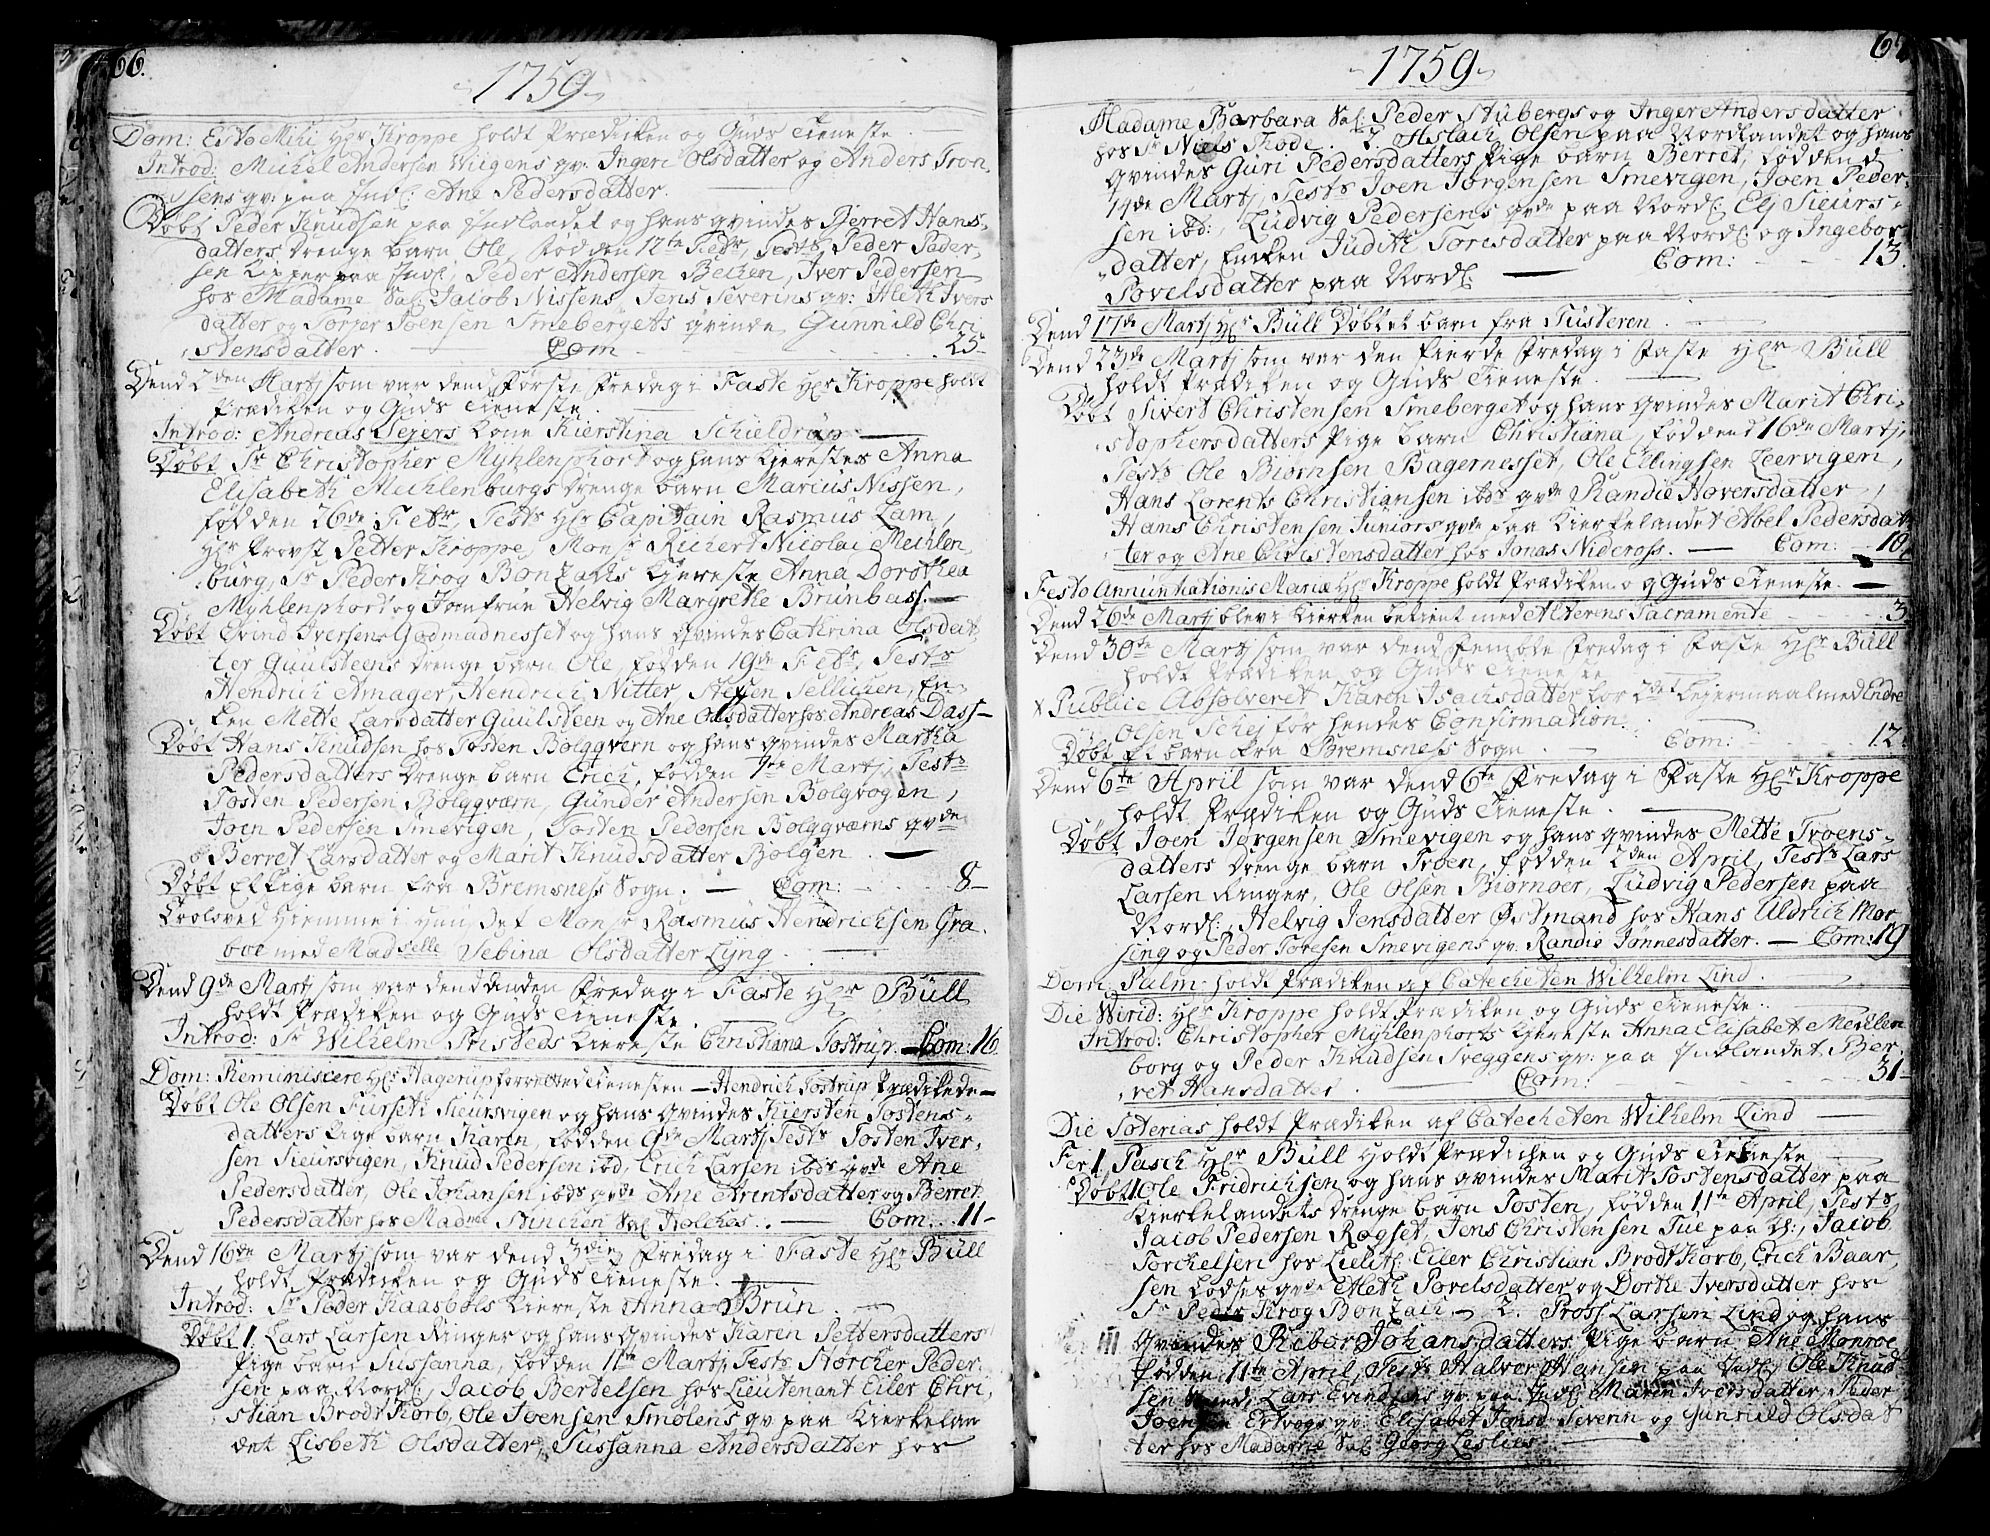 66.
1759
Dom: Esto Mihi Hr Kroppe holdt Prædiken og Guds Tieneste
Introd: Michel Andersen Wiigens qv: Ingeri Olsdatter og Anders Tron,
sens qv: paa Indl: Ane Pedersdatter.
Døbt Peder Knudsen paa Indlandet og hans qvindes Berret Hans-
datters drenge barn Ole, fød den 12te Febr, Tests Peder Peder-
sen paa Indl, Peder Andersen Betzen, Iver Pedersen
hos Madame Sal Jacob Nissens, Jens Severins qv: Aleth Ivers
datter og Torger Joensen Smebergets qvinde Gunnild Chri
stensdatter. Com 25
Dend 2den Martj som var dend Første Fredag i Faste Hr Kroppe holdt
Prædiken og Guds Tieneste.
Introd: Andreas Sejers Kone Kierstina Schieldrup
Døbt Sr Christopher Myhlenphort og hans Kierestes Anna
Elisabeth Meuhlenburgs drenge barn Marius Nissen,
fød den 26de Febr, Tests Hr Capitain Rasmus Lam,
Hr Provst Petter Kroppe, Monsr Richert Nicolai Meuhlen
burg, Sr Peder Krog Bontzachs Kiereste Anna Dorothea
Myhlenphort og Jomfrue Helvig Margrethe Brunbass.
Døbt Evind Iversen Godmadnesset og hans qvindes Catrina Olsdat,
ter Guulsteens drenge barn Ole, fød den 19de Febr, Tests
Hendrich Amager, Hendrich Nitter Steffen Sellichen, En-
ken Mette Larsdatter Guulsteen og Ane Olsdatter hos Andreas Dass
Døbt Hans Knudsen hos Tosten Bolgqvern og hans qvindes Martha
Pedersdatters drenge barn Erich, fød den 1te Martj, Tests
Tosten Pedersen Bolgqværn, Gunder Andersen Bolgvogen,
Joen Pedersen Smevigen, Tosten Pedersen Bolgqværns qvde
Berret Larsdatter og Marit Knudsdatter Bolgen.
Døbt Et Pige barn fra Bremsness Sogn. Com: 8
Troloved hiemme i Huus det Monsr Rasmus Hendrichsen Gra
ove med Madselle Sebina Olsdatter Lyng.
Dend 9de Martj som var dend anden Fredag i Faste Hr Büll
holdt Prædiken og Guds Tieneste.
Introd: Sr Wilhelm Tristeds Kiereste Christiana Tostrup. Com: 16
Dom: Reminiscere Hr Hagerup forrettede Tienesten - Hendrich Tostrup Prædikede
Døbt Ole Olsen Furseth Sieursvigen og hans qvindes Kiersten Tostens-
datters Pige barn Karen, fød den 9de Martj Tests Tosten Iver-
sen Sieursvigen, Knud Pedersen ibd, Erich Larsen ibds qvde Ane
Pedersdatter, Ole Johansen ibds qvde Ane Arentsdatter og Berret
Pedersdatter hos Madme Stinchen Sal Holches. Com: 11
Dend 16de Martj som var dend 3die Fredag i Faste Hr Büll
holdt Prædiken og Guds Tieneste.
Introd: Sr Peder Kaasbøls Kiereste Anna Brun.
Døbt 1. Lars Larsen Ringer og hans qvindes Karen Pettersdatters
Pige barn Sussanna, fød den 11te Martj Tests Størcher Peder
sen paa Nordl, Jacob Bertelsen hos Lieutenant Eiler Chri,
stian Brodtkorb, Ole Joensen Smølens qv paa Kierkelan
det Lisbeth Olsdatter, Sussanna Andersdatter hos
67
1759
Madame Barbara Sal Peder Stubergs og Inger Andersdatter
hos Sr Niels Thode. 2. Aslach Olsen paa Nordlandet og hans
qvindes Guri Pedersdatters Pige barn Berret, fød dend
14de Martj, Tests Joen Jørgensen Smevigen, Joen Peder-
sen ibd:, Ludvig Pedersens qvde paa Nordl: Eli Sieurs-
datter, Encken Judith Toresdatter paa Nordl: og Ingebor
Povelsdatter paa Nordl: Com: 13
Dend 17de Martj Hr Büll Døbt et barn fra Tusteren.
Dend 23de Martj som var den fierde Fredag i Faste Hr Büll
holdt Prædiken og Guds Tieneste.
Døbt Sivert Christensen Smeberget og hans qvindes Marit Chri-
stophersdatters Pige barn Christiana, fød dend 16de Martj,
Tests Ole Biørnsen Bagernesset, Ole Ellingsen Leervigen,
Hans Lorents Christiansen ibds qvde Randie Haversdatter,
Hans Christensen Juniors qvde paa Kierkelandet Abel Pedersdat
ter og Ane Christensdatter hos Jonas Nideross. Com: 10
Festo Annuntiationis Mariæ Hr Kroppe holdt Prædiken og Guds Tieneste.
Dend 26de Martj blev i Kierken betient med Alterens Sacramente 3
Dend 30te Martj som var dend femdte Fredag i Faste Hr Büll
holdt Prædiken og Guds Tieneste
Publice Absolveret Karen Isachsdatter for 2det Leyermaal med Endre
Olsen Schej for hendes Confirmation.
Døbt Et barn fra Bremsness Sogn. Com: 12
Dend 6te April som var dend 6te Fredag i Faste Hr Kroppe
holdt Prædiken og Guds Tieneste.
Døbt Joen Jørgensen Smevigen og hans qvindes Mette Troens-
datters drenge barn Troen, fød den 2den April, Tests Lars
Larsen Ringer, Ole Olsen Biørnøer, Ludvig Pedersen paa
Nordl:, Helvig Jensdatter Østmand hos Hans Uldrich Mor,
sing og Peder Toresen Smevigens qv: Randie Jønnesdatter. Com: 19
Dom: Palm: holdt Prædiken af Catecheten Wilhelm Lind.
Die Wirid: Hr Kroppe holdt Prædiken og Guds Tieneste.
Introd: Christopher Myhlenphorts Kiereste Anna Elisabet Meuhlen
borg og Peder Knudsen Sveggens qv: paa Indlandet Ber
ret Hansdatter Com: 31
Die Soterias holdt Prædiken af Catecheten Wilhelm Lind
Fer 1 Pasch Hr Büll holdt Prædichen og Guds Tieneste
Døbt 1 Ole Fridrichsen og hans qvindes Marit Tostensdatter paa
Kierkelandets drenge barn Tosten, fød den 11te April, Tests
Jacob Pedersen Rogset, Jens Christensen Tue paa Kl:, Jacob
Torchelsen hos Lieuth: Eiler Christian Brodtkorb, Erich Baar,
sen Lodses qvde Meth Povelsdatter og Dorthe Iversdatter hos
Sr Peder Krog Bontzach. 2. Pross Larsen Lind og hans
qvindes Ribor Johansdatters Pige barn Ane Monroe
fød den 11te April, Tests Halvor Hansen paa Indl, Ole Knud
sen, Lars Evindsens qv paa Indl Maren Iversdatter, Peder
Joensen Ertvogs qv: Elisabet Jensd Severin og Gunnild Olsdat
ter hos Madame Sal Georg Leslies